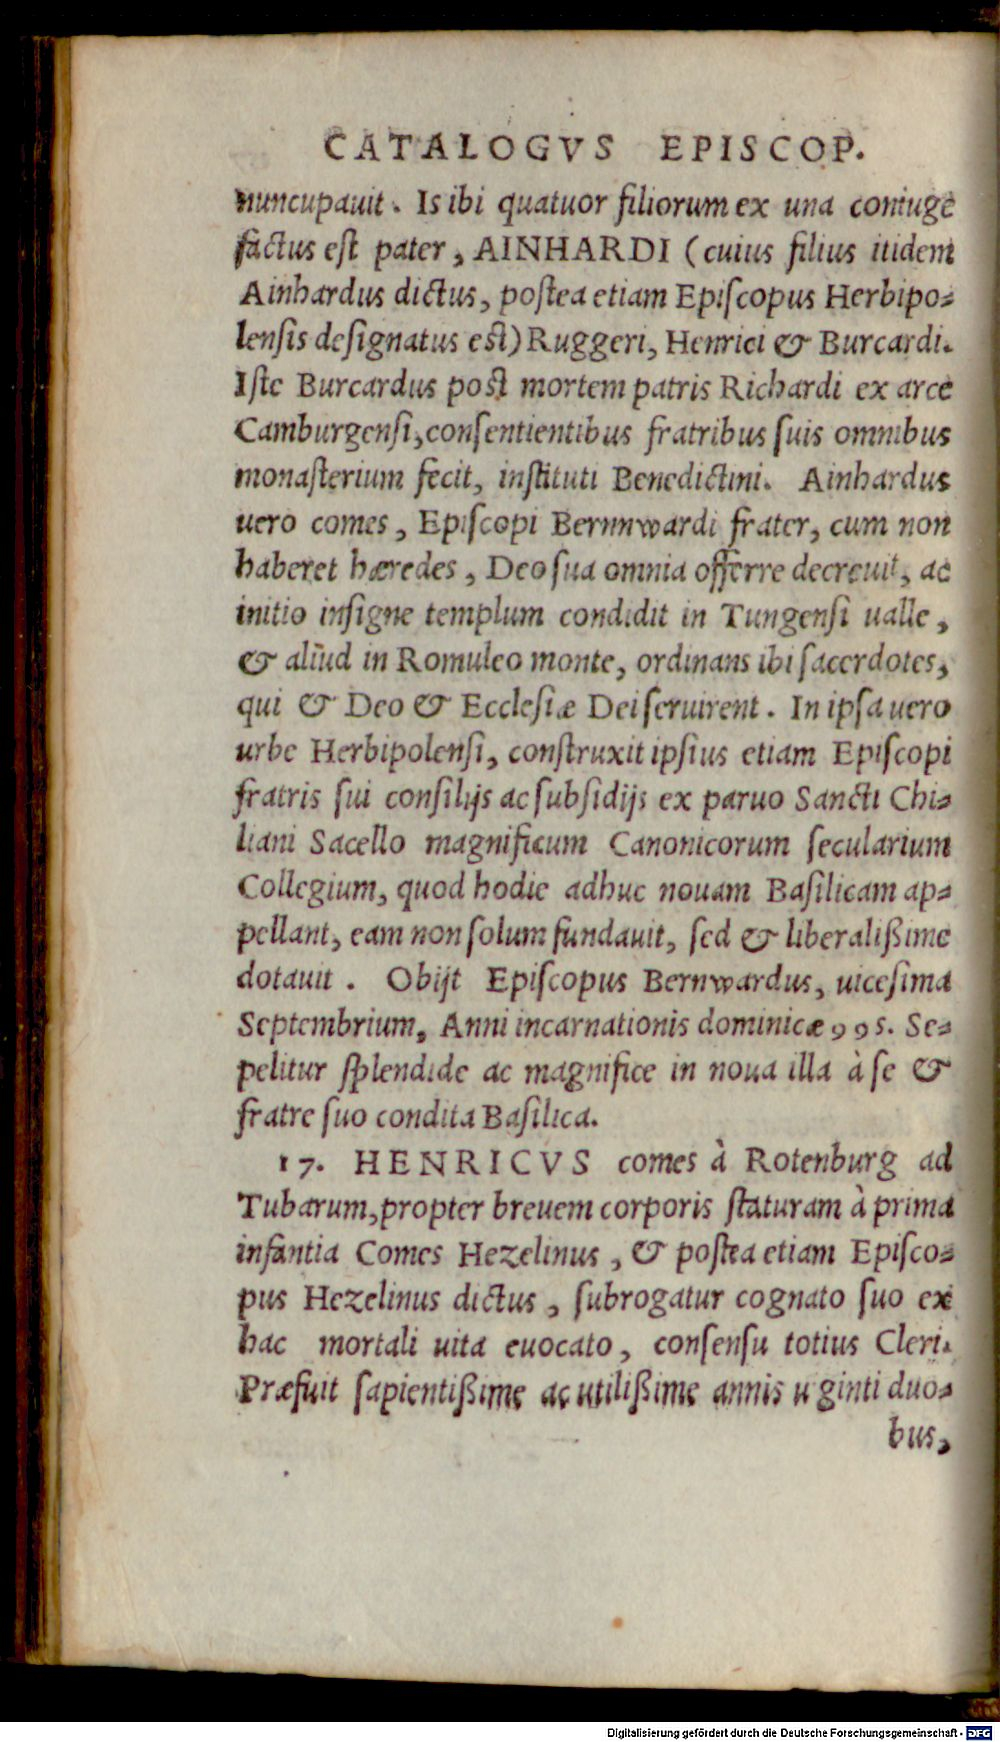 CATALOGVS EPISCOP.
nuncupauit. Is ibi quatuor filiorum ex una coniuge
factus est pater, AINHARDI (cuius filius itidem
Ainhardus dictus, postea etiam Episcopus Herbipo-
lensis designatus est) Ruggeri, Henrici & Burcardi.
Iste Burcardus post mortem patris Richardi ex arce
Camburgensi, consentientibus fratribus suis omnibus
monasterium fecit, instituti Benedictini. Ainhardus
uero comes, Episcopi Bernnwardi frater, cum non
haberet hæredes, Deo sua omnia offerre decreuit, ac
initio insigne templum condidit in Tungensi ualle,
& aliud in Romuleo monte, ordinans ibi sacerdotes,
qui & Deo & Ecclesiæ Dei seruirent. In ipsa uero
urbe Herbipolensi, construxit ipsius etiam Episcopi
fratris sui consilijs ac subsidijs ex paruo Sancti Chi-
liani Sacello magnificum Canonicorum secularium
Collegium, quod hodie adhuc nouam Basilicam ap-
pellant, eam non solum fundauit, sed & liberalißime
dotauit. Obijt Episcopus Bernwardus, uicesima
Septembrium, Anni incarnationis dominicæ 995. Se-
pelitur splendide ac magnifice in noua illa à se &
fratre suo condita Basilica.
17. HENRICVS comes à Rotenburg ad
Tubarum, propter breuem corporis staturam à prima
infantia Comes Hezelinus, & postea etiam Episco-
pus Hezelinus dictus, subrogatur cognato suo ex
hac mortali uita euocato, consensu totius Cleri.
Præfuit sapientißime ac utilißime annis uiginti duo-
bus,
Digitalisierung gefördert durch die Deutsche Forschungsgemeinschaft - DFG